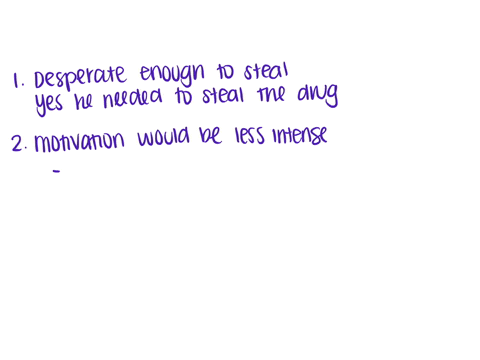 1. Desperate enough to steal
Yes he needed to steal the drug
2. Motivation would be less intense
-